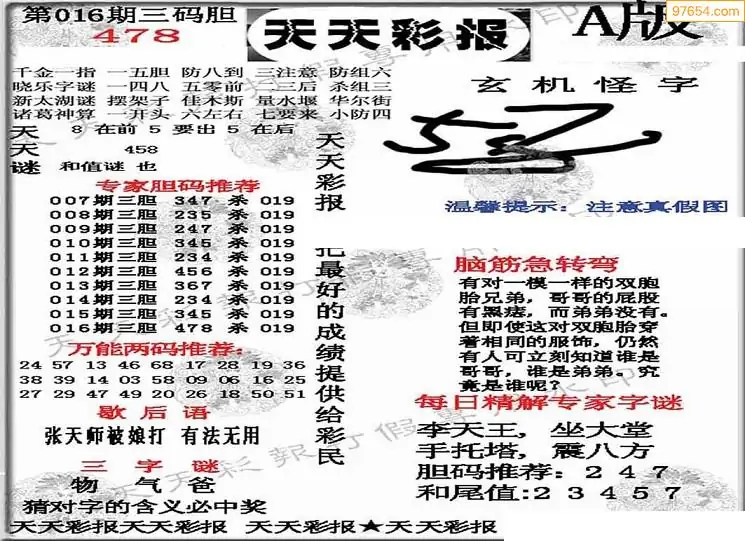 第016期三码胆
478
天天彩报
A版
97654.com
千金一指 一五胆 防八到 三注意 防组六
晓乐字谜 一四八 五零前 二三后 杀组三
新太湖谜 摆架子 佳木斯 量水堰 华尔街
诸葛神算 一开头 六左右 七要来 小防四
天 8 在前 5 要出 5 在后
天 458
谜 和值谜 也
专家胆码推荐
007期三胆 347 杀 019
008期三胆 235 杀 019
009期三胆 247 杀 019
010期三胆 345 杀 019
011期三胆 234 杀 019
012期三胆 456 杀 019
013期三胆 367 杀 019
014期三胆 234 杀 019
015期三胆 345 杀 019
016期三胆 478 杀 019
万能两码推荐:
24 57 13 46 68 17 28 19 36
38 39 14 03 58 09 06 16 25
27 29 47 49 20 26 18 50 51
歇后语
张天师被娘打 有法无用
三字谜
物气爸
猜对字的含义必中奖
天天彩报
把最好的成绩提供给彩民
玄机怪字
温馨提示: 注意真假图
脑筋急转弯
有对一模一样的双胞
胎兄弟,哥哥的屁股
有黑痣,而弟弟没有。
但即使这对双胞胎穿
着相同的服饰,仍然
有人可立刻知道谁是
哥哥,谁是弟弟。究
竟是谁呢?
每日精解专家字谜
李天王,坐大堂
手托塔,震八方
胆码推荐:247
和尾值:23457
天天彩报天天彩报 天天彩报★天天彩报